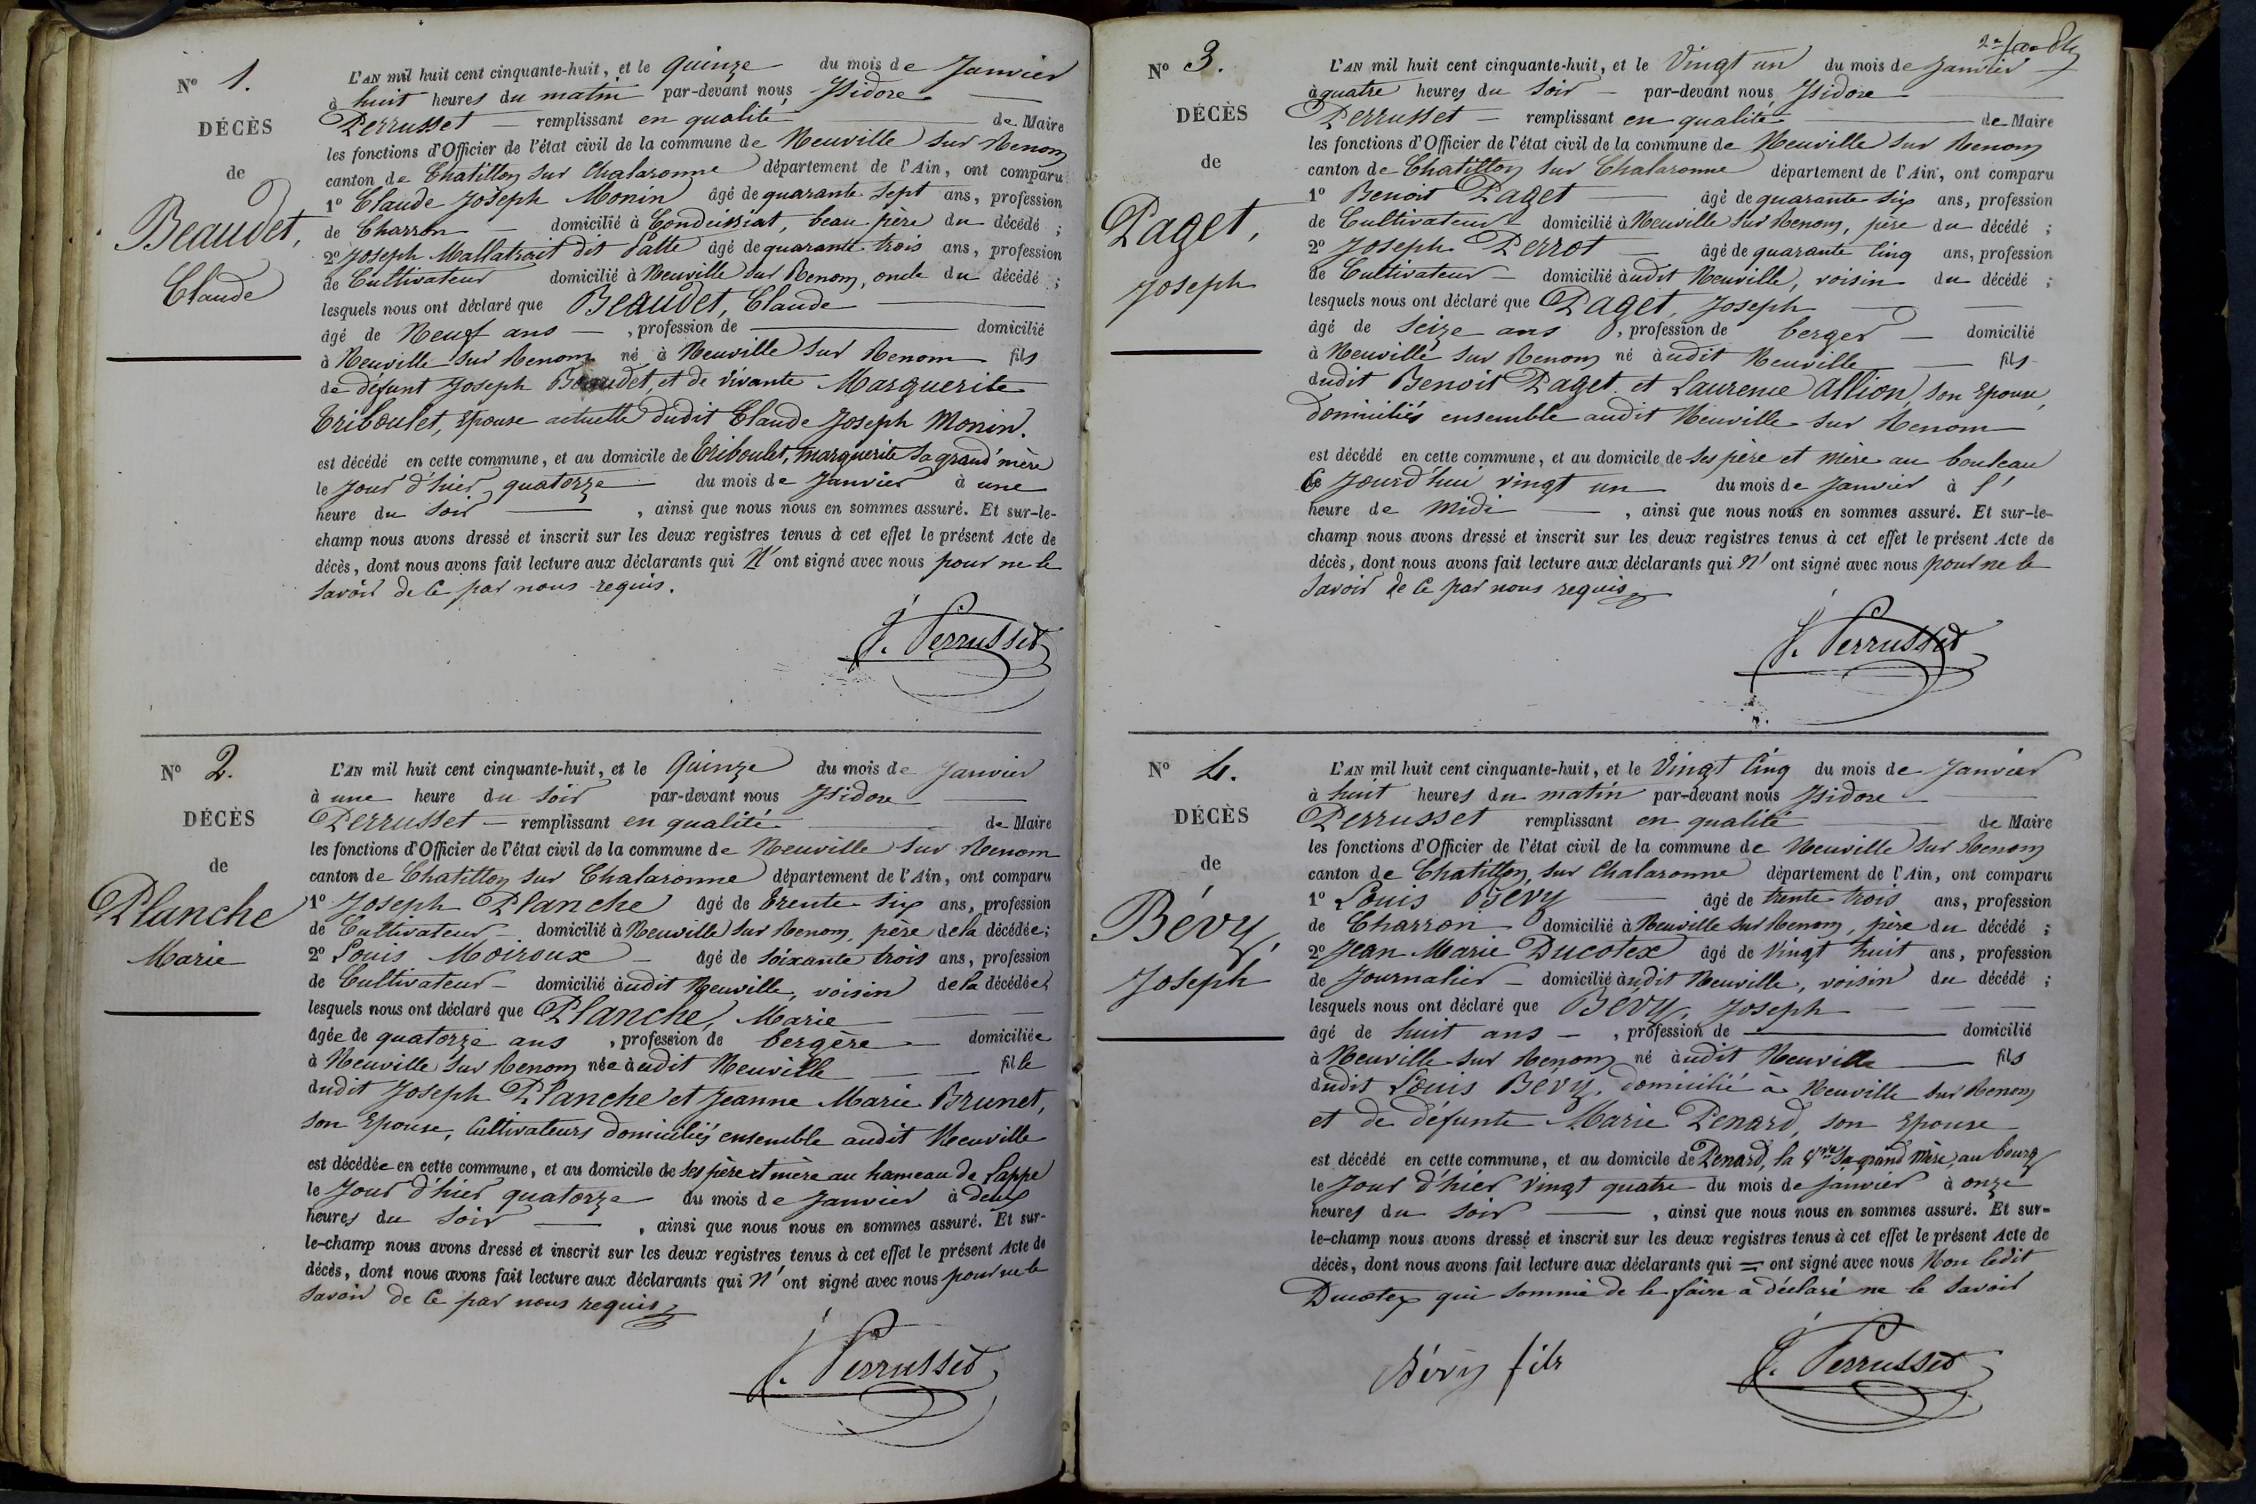 No 1.
DÉCÈS
de
Beaudet,
Claude
L'AN mil huit cent cinquante-huit, et le quinze du mois de Janvier
à huit heures du matin par-devant nous Isidore
Perrusset remplissant en qualité de Maire
les fonctions d'Officier de l'état civil de la commune de Neuville sur Renom
canton de Chatillon sur Chalaronne département de l'Ain, ont comparu
1º Claude Joseph Monin âgé de quarante sept ans, profession
de Charron domicilié à Condeissiat, beau père du décédé ;
2º Joseph Mallatrait dit âgé de quarante trois ans, profession
de Cultivateur domicilié à Neuville sur Renom, oncle du décédé ;
lesquels nous ont déclaré que Beaudet, Claude
âgé de Neuf ans , profession de domicilié
à Neuville sur Renom né à Neuville sur Renom fils
de défunt Joseph Beaudet et de vivante Marguerite
Triboulet, Epouse actuelle dudit Claude Joseph Monin.
est décédé en cette commune, et au domicile de Triboulet, Marguerite sa grand'mère
le jour d'hier quatorze du mois de Janvier à une
heure du soir , ainsi que nous nous en sommes assuré. Et sur-le-
champ nous avons dressé et inscrit sur les deux registres tenus à cet effet le présent Acte de
décès, dont nous avons fait lecture aux déclarants qui N'ont signé avec nous pour ne le
savoir de ce par nous requis.
J. Perrusset
No 2.
DÉCÈS
de
Planche
Marie
L'AN mil huit cent cinquante-huit, et le Quinze du mois de Janvier
à une heure du soir par-devant nous Isidore
Perrusset remplissant en qualité de Maire
les fonctions d'Officier de l'état civil de la commune de Neuville sur Renom
canton de Chatillon sur Chalaronne département de l'Ain, ont comparu
1º Joseph Planche âgé de trente six ans, profession
de Cultivateur domicilié à Neuville sur Renom, père de la décédée ;
2º Louis Moiroux âgé de soixante trois ans, profession
de Cultivateur domicilié audit Neuville, voisin de la décédée
lesquels nous ont déclaré que Planche, Marie
âgée de quatorze ans , profession de bergère domiciliée
à Neuville sur Renom née audit Neuville fille
dudit Joseph Planche et Jeanne Marie Brunet,
son Epouse, Cultivateurs domiciliés ensemble audit Neuville
est décédée en cette commune, et au domicile de ses père et mère au hameau de Lappe
le jour d'hier quatorze du mois de Janvier à deux
heures du soir , ainsi que nous nous en sommes assuré. Et sur-
le-champ nous avons dressé et inscrit sur les deux registres tenus à cet effet le présent Acte de
décès, dont nous avons fait lecture aux déclarants qui N'ont signé avec nous pour ne le
savoir de ce par nous requis
J. Perrusset
No 3.
DÉCÈS
de
Paget,
Joseph
L'AN mil huit cent cinquante-huit, et le Vingt un du mois de Janvier
à quatre heures du soir par-devant nous Isidore
Perrusset remplissant en qualité de Maire
les fonctions d'Officier de l'état civil de la commune de Neuville sur Renom
canton de Chatillon sur Chalaronne département de l'Ain, ont comparu
1º Benoit Paget âgé de quarante six ans, profession
de Cultivateur domicilié à Neuville sur Renom, père du décédé ;
2º Joseph Perrot âgé de quarante cinq ans, profession
de Cultivateur domicilié audit Neuville, voisin du décédé ;
lesquels nous ont déclaré que Paget, Joseph
âgé de seize ans , profession de berger domicilié
à Neuville sur Renom né audit Neuville fils
dudit Benoit Paget et Laurence Allion, son Epouse,
domiciliés ensemble audit Neuville sur Renom
est décédé en cette commune, et au domicile de ses père et mère au bouleau
Ce Jourd'hui vingt un du mois de Janvier à l'
heure de Midi , ainsi que nous nous en sommes assuré. Et sur-le-
champ nous avons dressé et inscrit sur les deux registres tenus à cet effet le présent Acte de
décès, dont nous avons fait lecture aux déclarants qui N'ont signé avec nous pour ne le
savoir de ce par nous requis
J. Perrusset
No 4.
DÉCÈS
de
Bévy,
Joseph
L'AN mil huit cent cinquante-huit, et le Vingt Cinq du mois de Janvier
à huit heures du matin par-devant nous Isidore
Perrusset remplissant en qualité de Maire
les fonctions d'Officier de l'état civil de la commune de Neuville sur Renom
canton de Chatillon sur Chalaronne département de l'Ain, ont comparu
1º Louis Bévy âgé de trente trois ans, profession
de Charron domicilié à Neuville sur Renom, père du décédé ;
2º Jean Marie Ducotex âgé de Vingt huit ans, profession
de Journalier domicilié audit Neuville, voisin du décédé ;
lesquels nous ont déclaré que Bévy, Joseph
âgé de huit ans , profession de domicilié
à Neuville sur Renom né audit Neuville fils
dudit Louis Bévy, domicilié à Neuville sur Renom
et de défunte Marie Penard, son Epouse
est décédé en cette commune, et au domicile de Penard, la Vve sa grand Mère, au bourg
le jour d'hier vingt quatre du mois de janvier à onze
heures du soir , ainsi que nous nous en sommes assuré. Et sur-
le-champ nous avons dressé et inscrit sur les deux registres tenus à cet effet le présent Acte de
décès, dont nous avons fait lecture aux déclarants qui = ont signé avec nous Non ledit
Ducotex qui sommé de le faire a déclaré ne le savoir
Bévy fils
J. Perrusset